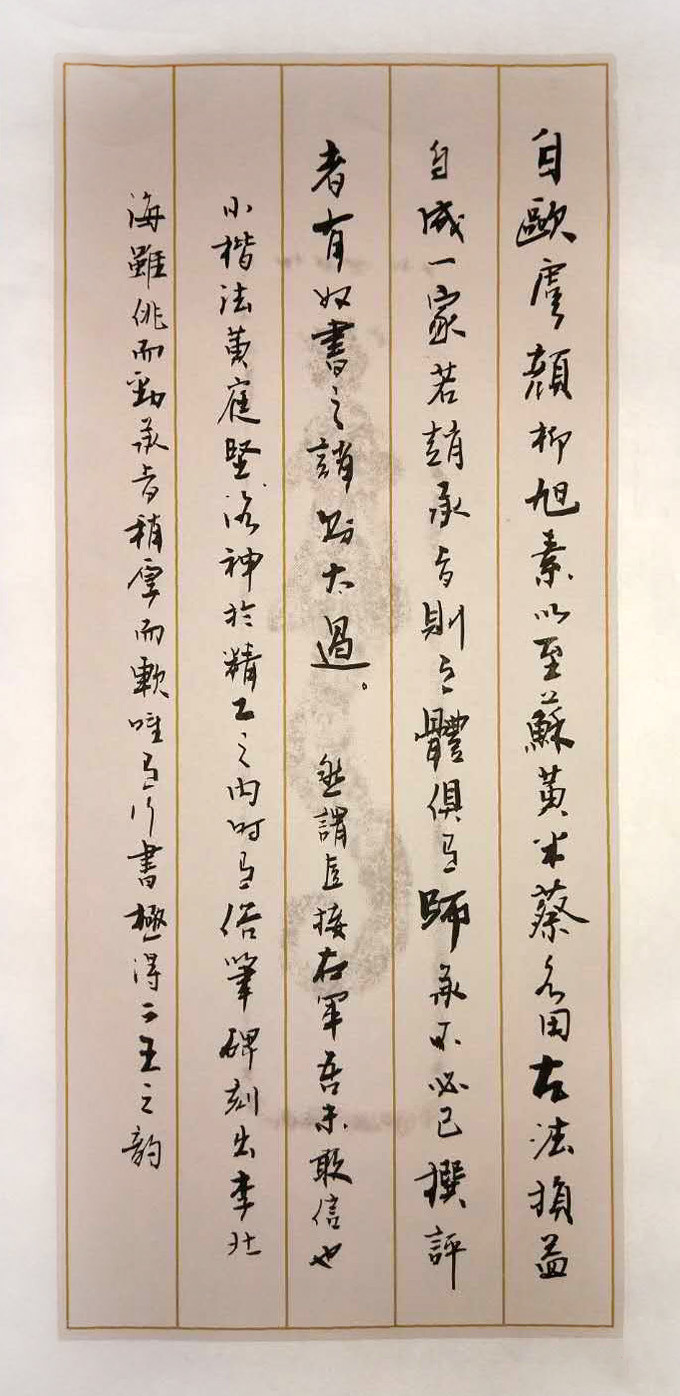 自歐虞顏柳旭素以至蘇黃米蔡各用古法損益
自成一家若趙承旨則之體俱有師承不必己撰評
者有奴書之誚則太過。 然謂直接右軍吾未敢信也
小楷法黃庭堅洛神於精工之內時有俗筆碑刻出李北
海雖佻而勁承旨稍厚而軟唯有行書極得二王之韵